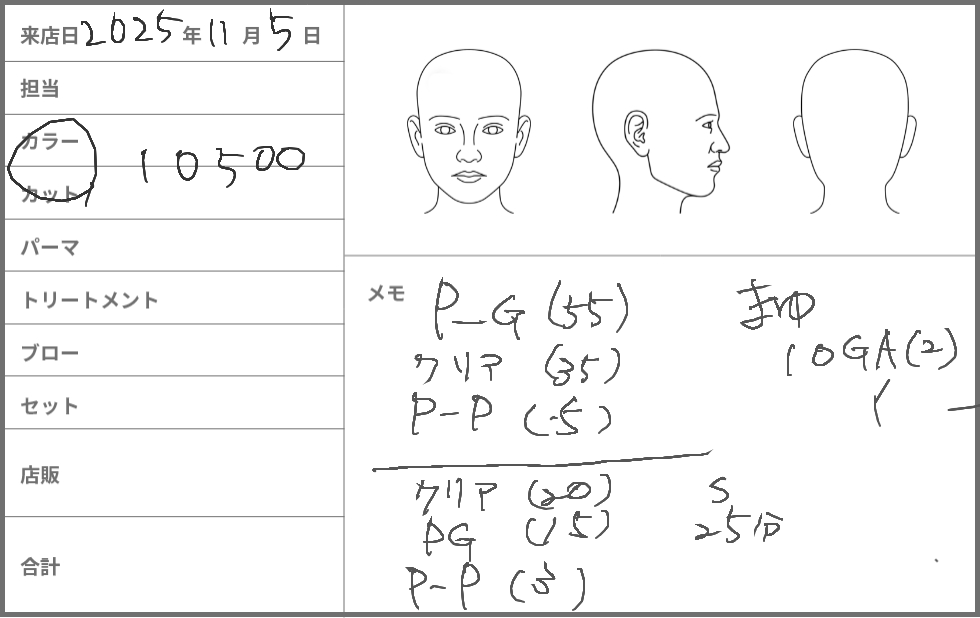 来店日2025年11月5日
担当
カラー
カット
10500
パーマ
トリートメント
ブロー
セット
店販
合計
メモ
P-G (55)
クリア (35)
P-P (5)
クリア (20)
PG (15)
P-P (3)
まゆ
10GA(2)
S
25分